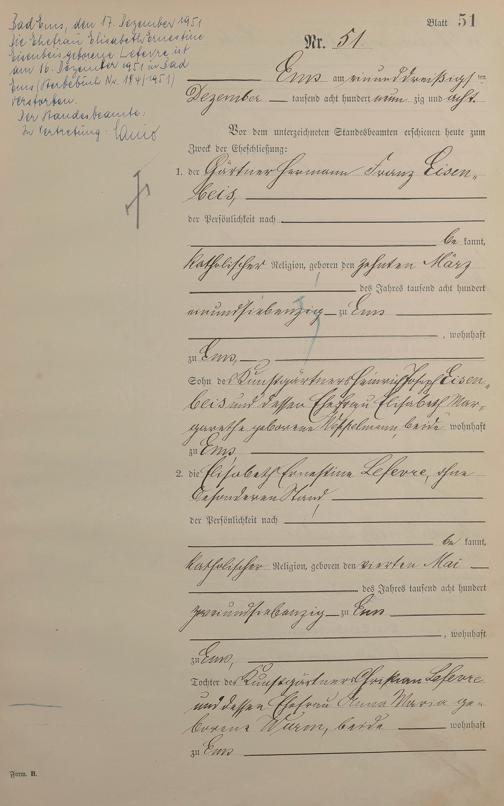 Bad Ems, den 17. Dezember 1951
Die Ehefrau Elisabeth Ernestine
Eisenbeis geborene Lefevre ist
am 16. Dezember 1951 in Bad
Ems (Sterbebuch Nr. 184/1951)
verstorben.
Der Standesbeamte:
In Vertretung:
Blatt 51
Nr. 51
Ems am neununddreißigs ten
Dezember tausend acht hundert neun zig und acht.
Vor dem unterzeichneten Standesbeamten erschienen heute zum
Zweck der Eheschließung:
1. der Gärtner Hermann Franz Eisen-
beis,
der Persönlichkeit nach
be kannt,
katholischer Religion, geboren den zehnten März
des Jahres tausend acht hundert
neunundsiebenzig zu Ems
, wohnhaft
zu Ems,
Sohn des Kunstgärtners Heinrich Joseph Eisen-
beis und dessen Ehefrau Elisabeth Mar-
garethe geborene beide wohnhaft
zu Ems
2. die Elisabeth Ernestine Lefevre, ohne
besonderen Stand,
der Persönlichkeit nach
be kannt,
katholischer Religion, geboren den vierten Mai
des Jahres tausend acht hundert
zweiundsiebenzig zu Ems
, wohnhaft
zu Ems,
Tochter des Kunstgärtners Christian Lefevre
und dessen Ehefrau Anna Maria ge-
borene Wurm, beide wohnhaft
zu Ems
Form. B.